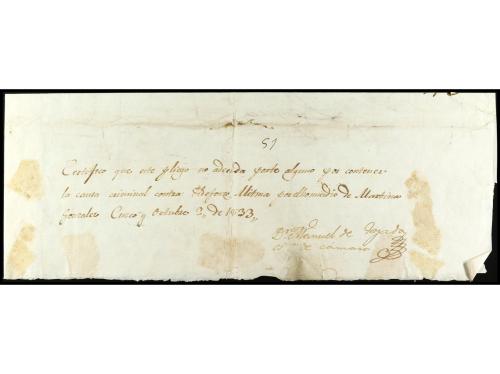 51
Certifico que este pliego no adeuda porte alguno por contener
la causa criminal contra Ildefonzo Mesma por Homicidio de Martina
Gonzales Cuzco y Octubre 2, de 1833,,
Dr. Manuel de Tejada
de camara